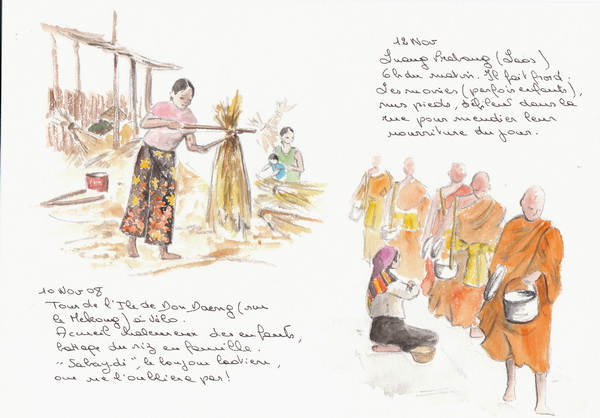 12 Nov
Luang Prabang (Laos)
6h du matin. Il fait froid.
Les moines (parfois enfants),
nus pieds, défilent dans la
rue pour mendier leur
nourriture du jour.
10 Nov 08
Tour de l'Ile de Don Daeng (sur
le Mékong) à vélo.
Accueil chaleureux des enfants,
battage du riz en famille.
"Sabaydi", le bonjour laotien,
on ne l'oubliera pas!